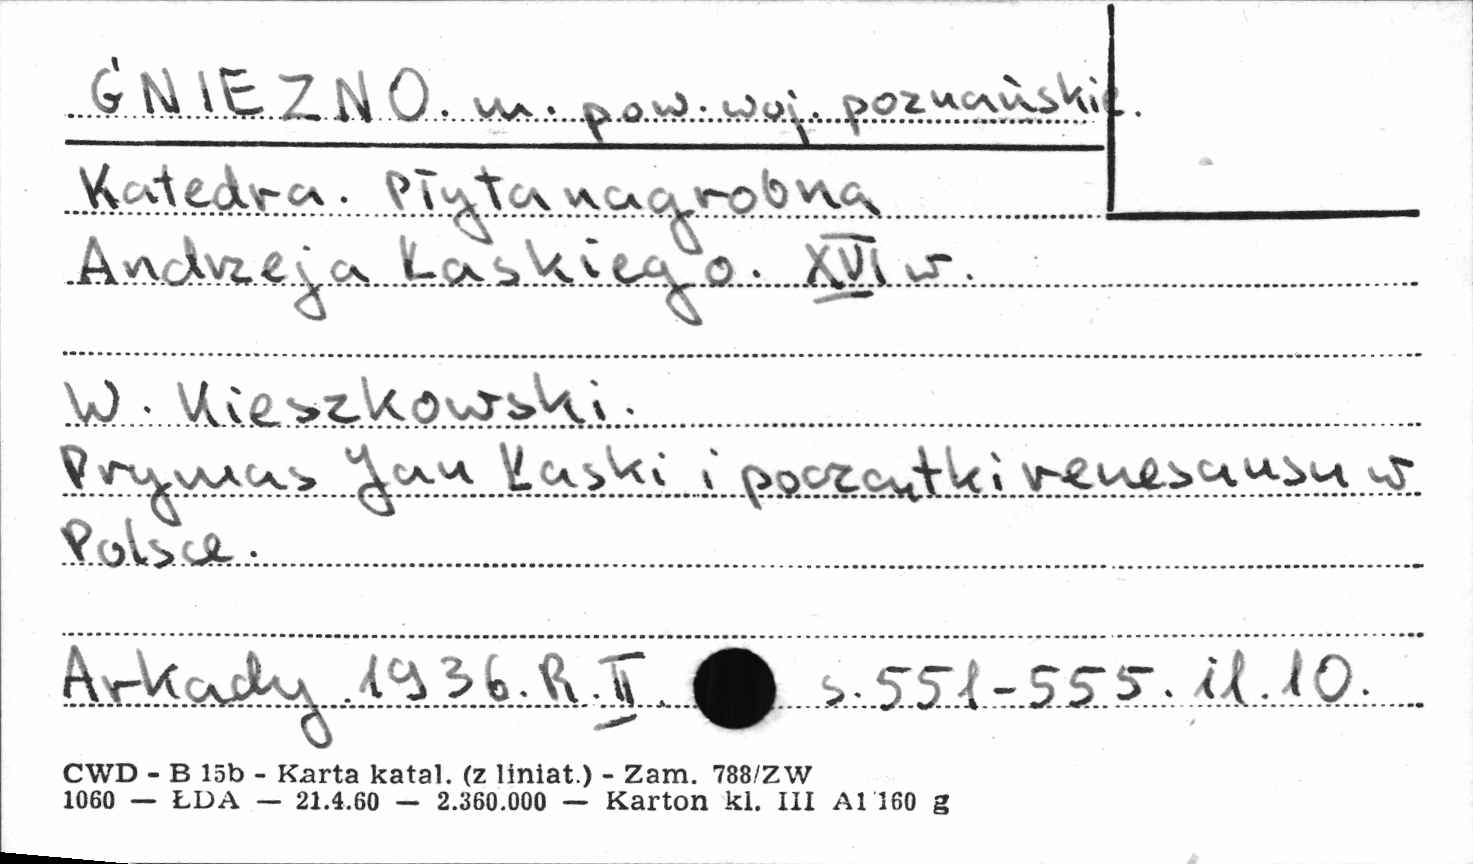 GNIEZNO. m. pow. woj. poznańskie.
Katedra. Płyta nagrobna
Andrzeja Łaskiego. XVI w.
W. Kieszkowski.
Prymas Jan Łaski i początki renesansu w
Polsce.
Arkady. 1936. R. II. s. 551-555. il. 10.
CWD - B 15b - Karta katal. (z liniat.) - Zam. 788/ZW
1060 — ŁDA — 21.4.60 — 2.360.000 — Karton kl. III A1 160 g